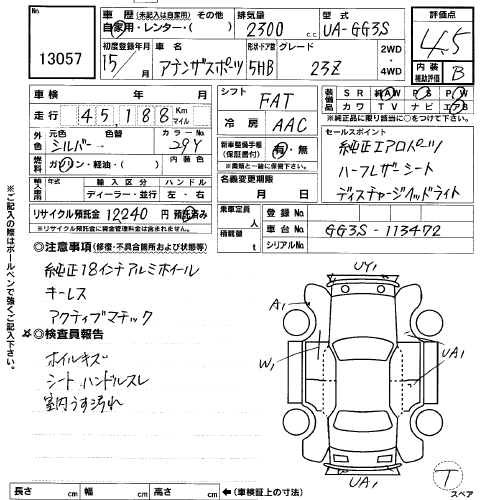 No. 13057
車歴 (未記入は自家用) その他
自家用・レンター・( )
排気量 2300 c.c.
型式 UA-GG3S
評価点 4.5
初度登録年月 15/
車名 アテンザスポーツ
形状・ドア数 5HB
グレード 23Z
2WD・4WD
内装補助評価 B
車検 年 月
走行 45,188 Km マイル
シフト FAT
冷房 AAC
装備品 SR 純AW PS PW
カワ TV ナビ エアB
※純正品に限り該当に○をつけて下さい。
外色 元色 シルバー 色替 → カラーNo. 29Y
燃料 ガソリン・軽油・( ) 内装色
新車整備手帳(保証書付) 有・無
(※書類と一緒に保管下さい。)
セールスポイント
純正エアロパーツ
ハーフレザーシート
ディスチャージヘッドライト
輸入車用 年式 輸入区分 ディーラー・並行 ハンドル 左・右
名義変更期限 月 日
リサイクル預託金 12240 円 預託済み
※リサイクル預託金に資金管理料金は含まれません。
乗車定員 人
積載量 t
登録No.
車台No. GG3S-113472
シリアルNo.
◎注意事項(修復・不具合箇所および状態等)
純正18インチアルミホイール
キーレス
アクティブマチック
☆◎検査員報告
ホイルキズ
シート、ハンドルスレ
室内うす汚れ
※ご記入の際はボールペンで強くご記入下さい。
UY1
A1
W1
UA1
UA1
T
スペア
長さ cm 幅 cm 高さ cm ←(車検証上の寸法)